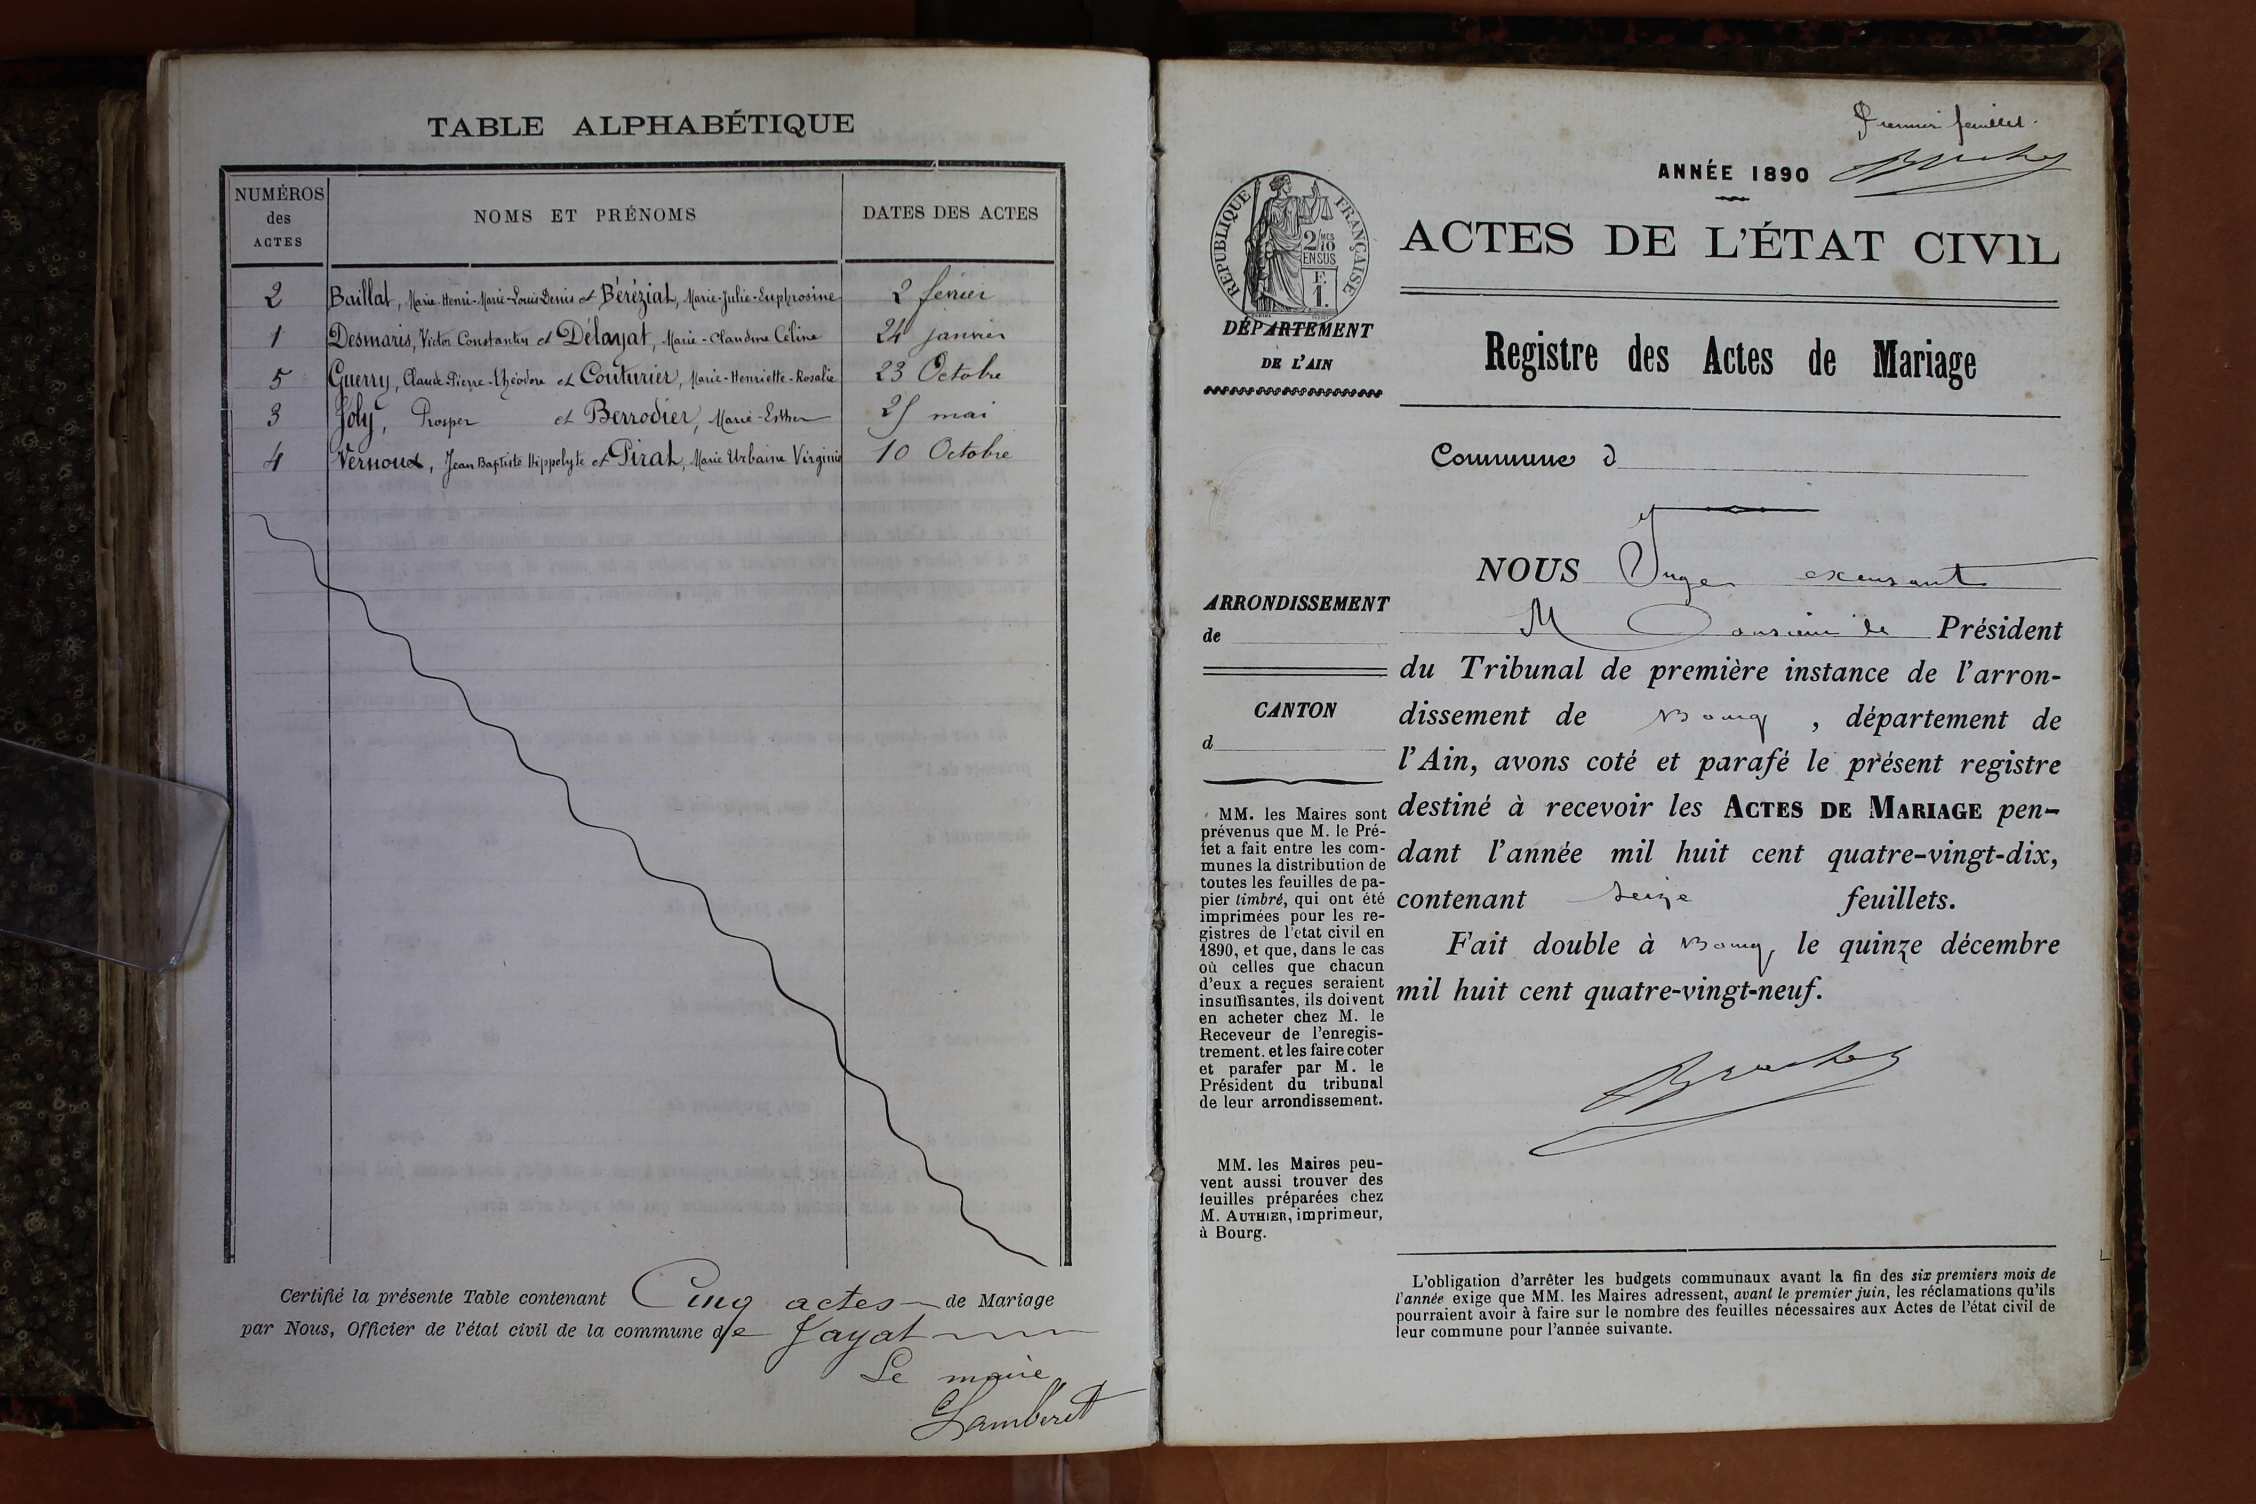 TABLE ALPHABÉTIQUE
NUMÉROS des ACTES
NOMS ET PRÉNOMS
DATES DES ACTES
2 Baillat, Marie-Henri-Marie-Louis-Denis et Béréziat, Marie-Julie-Euphrosine 2 février
1 Desmaris, Victor Constantin et Délayat, Marie-Claudine Céline 24 janvier
5 Guerry, Claude-Pierre-Théodore et Couturier, Marie-Henriette-Rosalie 23 Octobre
3 Joly, Prosper et Berrodier, Marie-Esther 25 mai
4 Vernoux, Jean Baptiste Hippolyte et Pirat, Marie Urbaine Virginie 10 Octobre
Certifié la présente Table contenant Cinq actes de Mariage
par Nous, Officier de l'état civil de la commune de Jayat
Le maire
Lamberet
Premier feuillet.
ANNÉE 1890
RÉPUBLIQUE FRANÇAISE
2/10 MES
EN SUS
F.
1.
DÉPARTEMENT
DE L'AIN
ACTES DE L'ÉTAT CIVIL
Registre des Actes de Mariage
Commune d
ARRONDISSEMENT
de
CANTON
d
MM. les Maires sont
prévenus que M. le Pré-
fet a fait entre les com-
munes la distribution de
toutes les feuilles de pa-
pier timbré, qui ont été
imprimées pour les re-
gistres de l'état civil en
1890, et que, dans le cas
où celles que chacun
d'eux a reçues seraient
insuffisantes, ils doivent
en acheter chez M. le
Receveur de l'enregis-
trement. et les faire coter
et parafer par M. le
Président du tribunal
de leur arrondissement.
MM. les Maires peu-
vent aussi trouver des
feuilles préparées chez
M. AUTHIER, imprimeur,
à Bourg.
NOUS Juge excusant
M Monsieur le Président
du Tribunal de première instance de l'arron-
dissement de Bourg, département de
l'Ain, avons coté et parafé le présent registre
destiné à recevoir les ACTES DE MARIAGE pen-
dant l'année mil huit cent quatre-vingt-dix,
contenant seize feuillets.
Fait double à Bourg, le quinze décembre
mil huit cent quatre-vingt-neuf.
L'obligation d'arrêter les budgets communaux avant la fin des six premiers mois de
l'année exige que MM. les Maires adressent, avant le premier juin, les réclamations qu'ils
pourraient avoir à faire sur le nombre des feuilles nécessaires aux Actes de l'état civil de
leur commune pour l'année suivante.